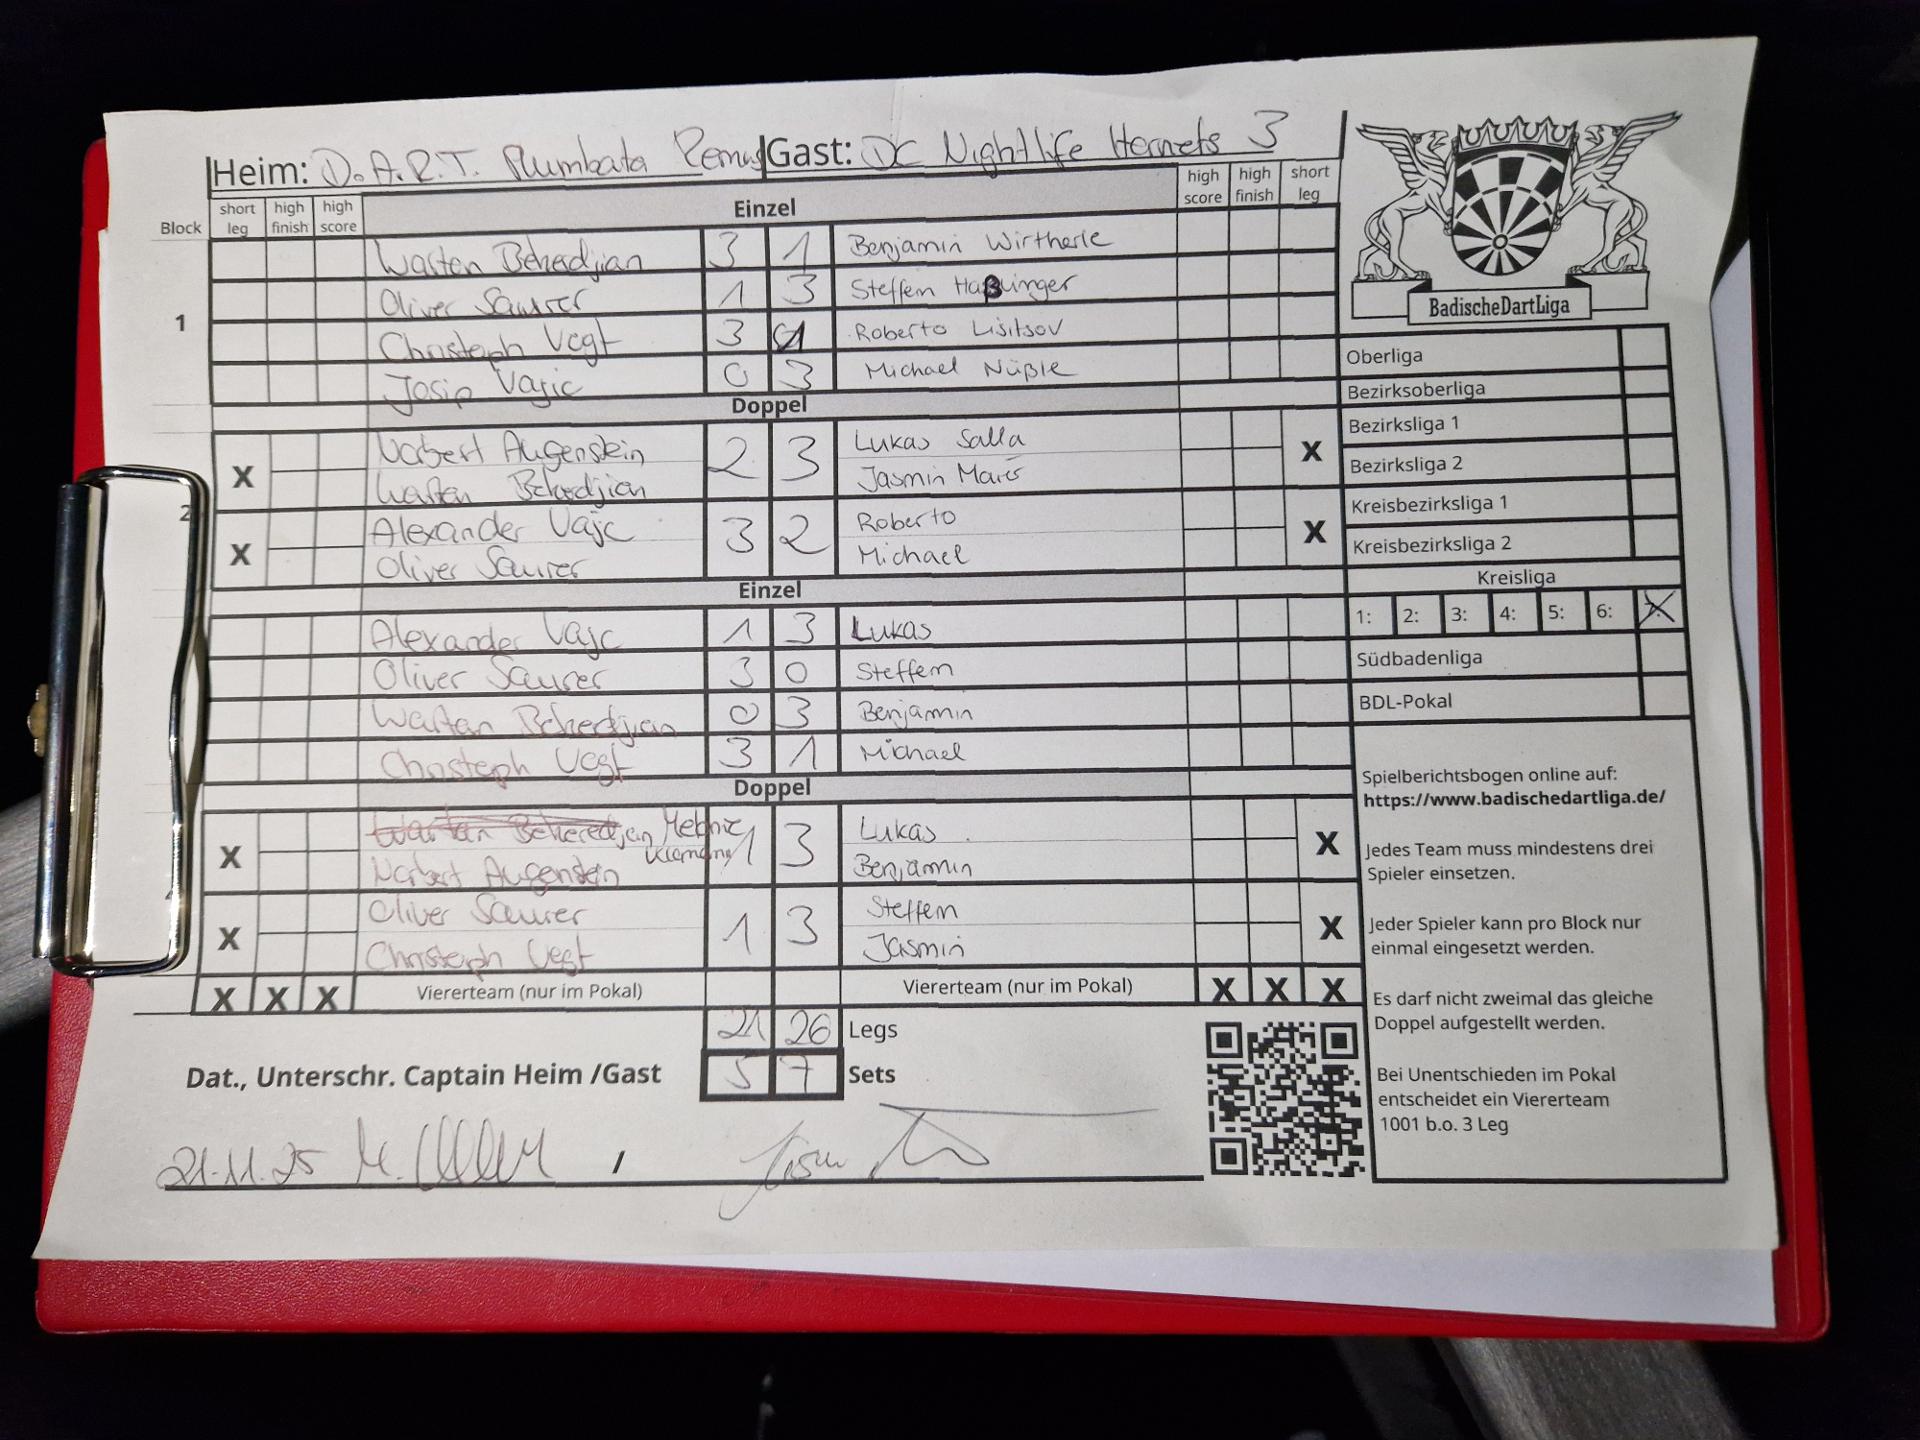 Heim: D.A.R.T. Plumbata Remus Gast: DC Nightlife Hornets 3
Block short leg high finish high score Einzel high score high finish short leg
1
Wartan Bekerdjian 3 1 Benjamin Wirtherle
Oliver Saurer 1 3 Steffen Haßlinger
Christoph Vogt 3 1 Roberto Lisitsov
Josip Vajic 0 3 Michael Nüßle
Doppel
2
X Norbert Augenstein 2 3 Lukas Salla X
Wartan Bekerdjian Jasmin Maier
X Alexander Vajc 3 2 Roberto X
Oliver Saurer Michael
Einzel
Alexander Vajc 1 3 Lukas
Oliver Saurer 3 0 Steffen
Wartan Bekerdjian 0 3 Benjamin
Christoph Vogt 3 1 Michael
Doppel
X Wartan Bekeredjian 1 3 Lukas X
Norbert Augenstein Benjamin
X Oliver Saurer 1 3 Steffen X
Christoph Vogt Jasmin
X X X Viererteam (nur im Pokal) Viererteam (nur im Pokal) X X X
21 26 Legs
5 7 Sets
Dat., Unterschr. Captain Heim /Gast
21.11.25 /
BadischeDartLiga
Oberliga
Bezirksoberliga
Bezirksliga 1
Bezirksliga 2
Kreisbezirksliga 1
Kreisbezirksliga 2
Kreisliga
1: 2: 3: 4: 5: 6: X
Südbadenliga
BDL-Pokal
Spielberichtsbogen online auf:
https://www.badischedartliga.de/
Jedes Team muss mindestens drei
Spieler einsetzen.
Jeder Spieler kann pro Block nur
einmal eingesetzt werden.
Es darf nicht zweimal das gleiche
Doppel aufgestellt werden.
Bei Unentschieden im Pokal
entscheidet ein Viererteam
1001 b.o. 3 Leg